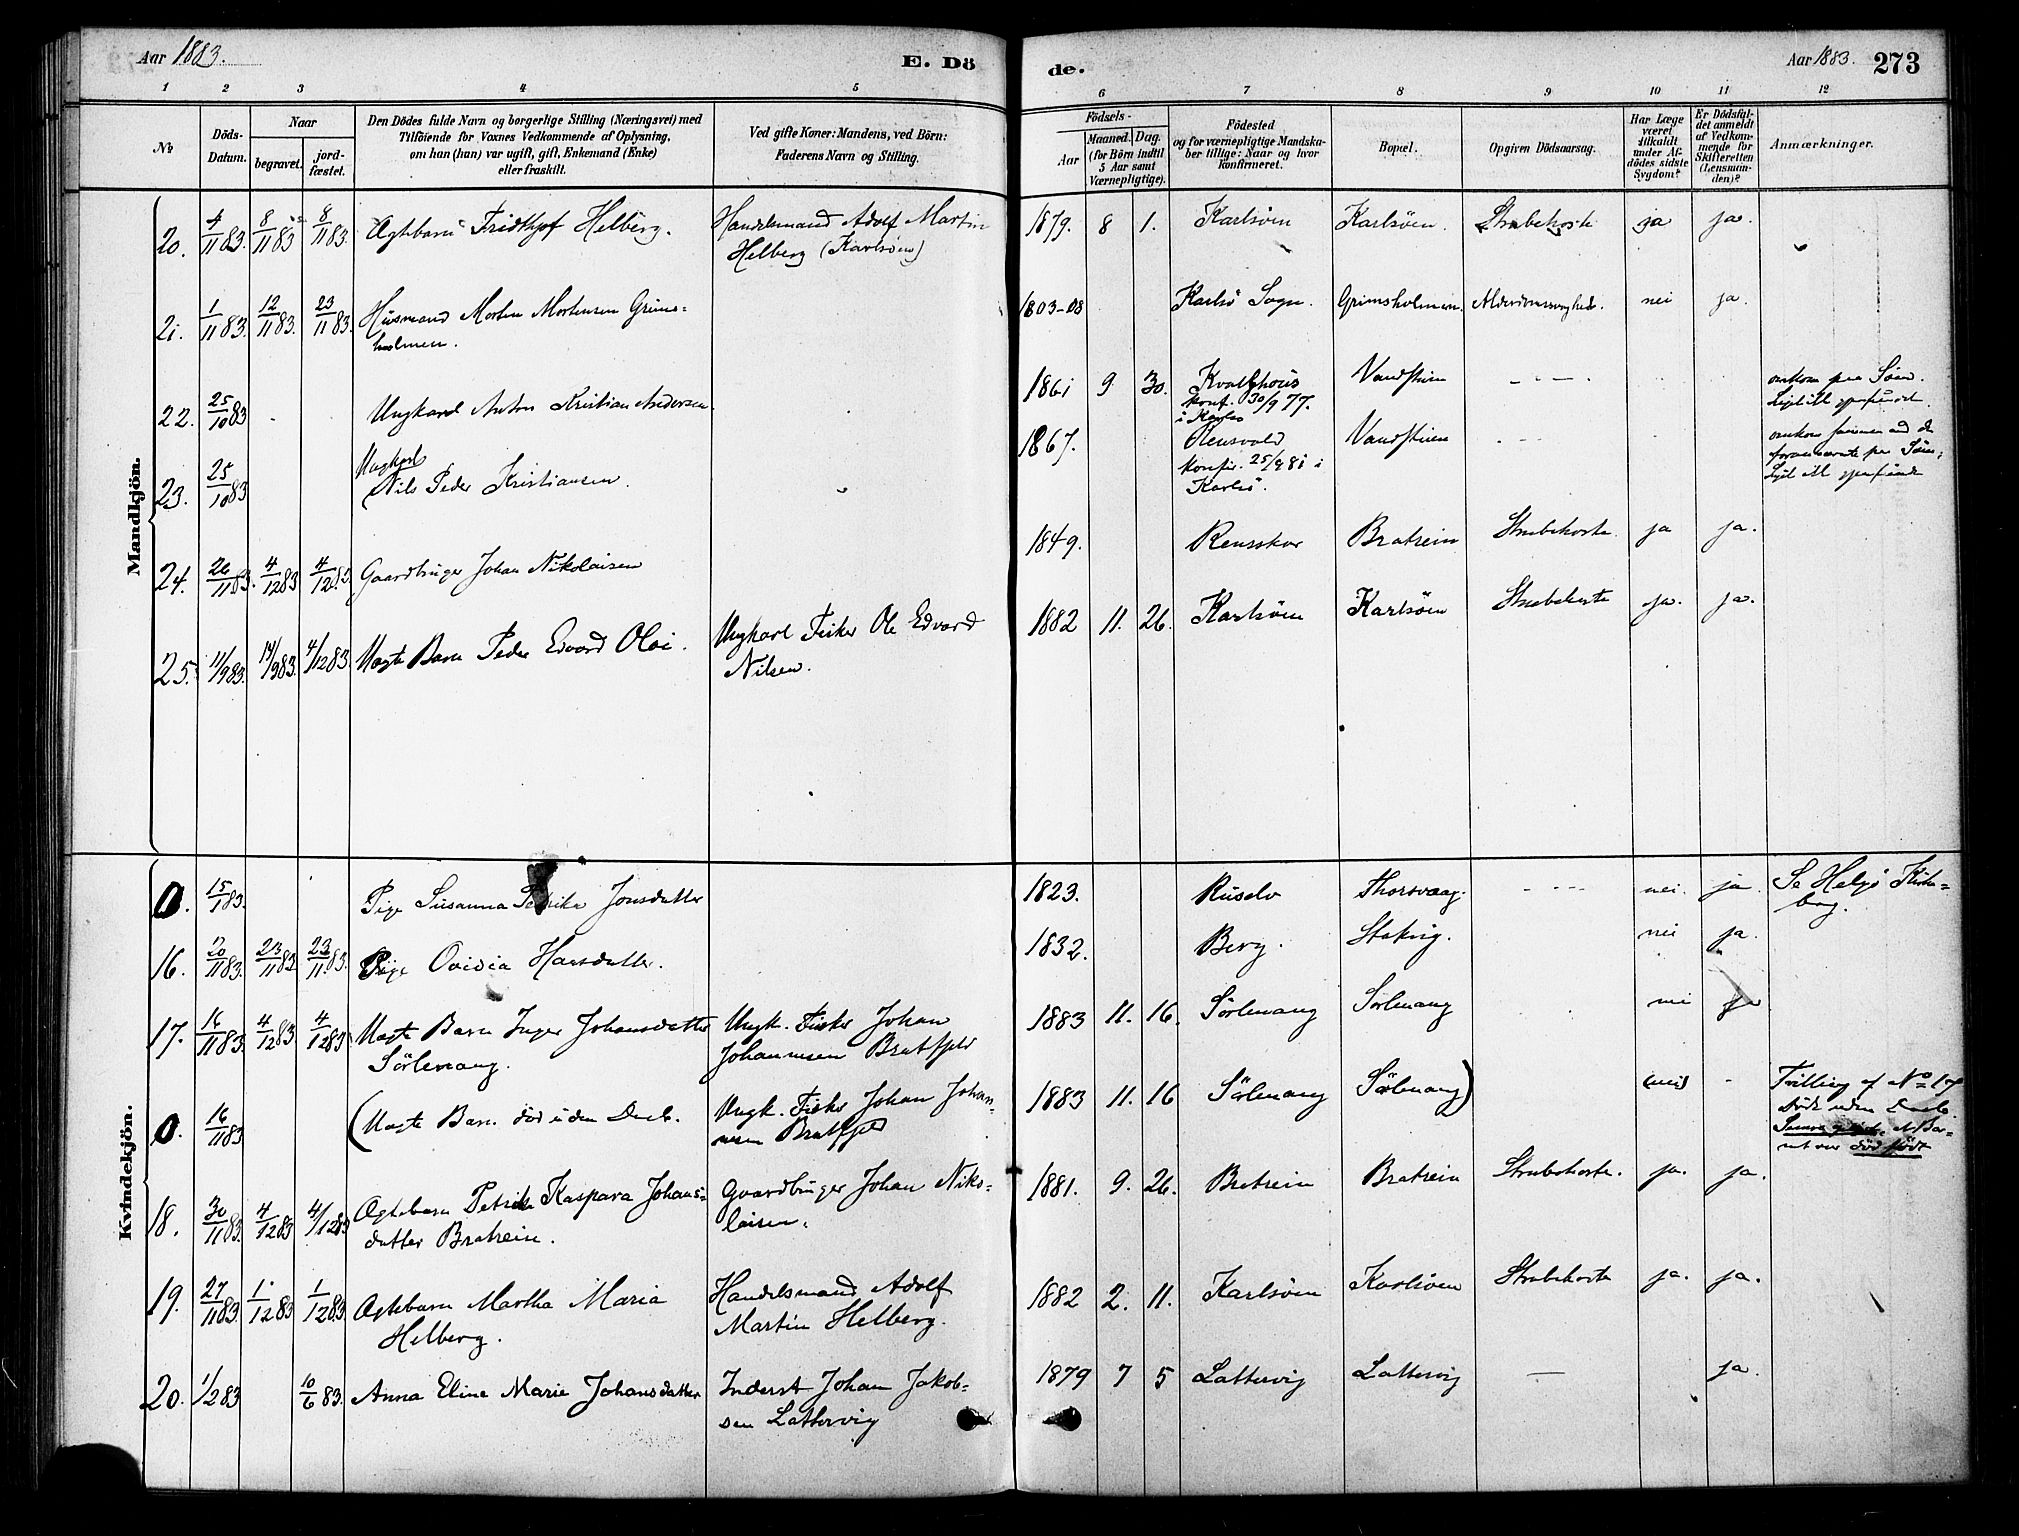 Aar 1883.
E. Dö
de.
Aar 1883. 273
1 2 3 4 5 6 7 8 9 10 11 12
No
Döds-
Datum.
Naar
begravet.
jord-
fæstet.
Den Dödes fulde Navn og borgerlige Stilling (Næringsvei) med
Tilföiende for Voxnes Vedkommende af Oplysning,
om han (hun) var ugift, gift, Enkemand (Enke)
eller fraskilt.
Ved gifte Koner: Mandens, ved Börn:
Faderens Navn og Stilling.
Födsels-
Aar
Maaned. Dag.
(for Börn indtil
5 Aar samt
Værnepligtige).
Födested
og for værnepligtige Mandska-
ber tillige: Naar og hvor
konfirmeret.
Bopæl.
Opgiven Dödsaarsag.
Har Læge
været
tilkaldt
under Af-
dödes sidste
Sygdom?
Er Dödsfal-
det anmeldt
af Vedkom-
mende for
Skifteretten
(Lensman-
den)?
Anmærkninger.
Mandkjön.
20. 4/11 83. 8/11 83 8/11 83. Ægtebarn Fridthjof Helberg. Handelsmand Adolf Martin
Helberg (Karlsöen)
1879. 8 1. Karlsöen Karlsöen. Strubehoste ja ja.
21. 1/11 83. 12/11 83. 23/11 83. Husmand Morten Mortensen Grims-
holmen.
1803-08 Karlsö Sogn. Grimsholmen. Alderdomssvaghed. nei ja.
22. 25/10 83 Ungkarl Anton Kristian Andersen.
1861 9 30. Kvalshous
konf. 30/9 77.
i Karlsö
Vandstuen - - - omkom paa Söen.
Liget ill opfundet.
23. 25/10 83 Ungkarl
Nils Peder Kristiansen.
1867. Rensvold
konfir. 25/9 81 i
Karlsö.
Vandstuen - - - omkom sammen med den
forannævnte paa Söen;
Liget ill opfundet
24. 26/11 83. 4/12 83 4/12 83 Gaardbruger Johan Nikolaisen
1849. Rensskar Bratrein Strubehoste. ja ja.
25. 11/9 83. 14/9 83. 4/12 83. Uægte Barn Peder Edvard Olai. Ungkarl Fisker Ole Edvard
Nilsen.
1882 11. 26. Karlsöen Karlsöen Strubehoste ja. ja.
Kvindekjön.
0. 15/1 83. Pige Susanna Petrika Jonsdatter
1823. Ruselv Thorsvaag. - - - nei. ja. Se Helgö Kirke-
bog.
16. 20/11 83 23/11 83 23/11 83. Pige Ovidia Hansdatter.
1832. Berg. Stakvig. nei ja.
17. 16/11 83. 4/12 83. 4/12 83 Uægte Barn Inger Johansdatter
Sörlenang.
Ungk. Fisker Johan
Johannesen Bratfjeld
1883 11. 16. Sörlenang Sörlenang nei ja
0. 16/11 83 (Uægte Barn. död uden Daab. Ungk. Fisker Johan Johan-
nesen Bratfjeld
1883 11. 16 Sörlenang Sörlenang) (nei) - Tvilling af No 17
död uden Daab.
at Bar-
net var dödfödt
18. 30/11 83. 4/12 83 4/12 83 Ægtebarn Petrikke Kaspara Johans-
datter Bratrein.
Gaardbruger Johan Niko-
laisen.
1881. 9. 26. Bratrein Bratrein Strubehoste. ja. ja.
19. 27/11 83. 1/12 83 1/12 83. Ægtebarn Martha Maria
Helberg.
Handelsmand Adolf
Martin Helberg.
1882 2. 11. Karlsöen Karlsöen Strubehoste ja. ja.
20. 1/2 83 10/6 83. Anna Eline Marie Johansdatter Inderst Johan Jakob-
sen Lattervig
1879 7 5 Lattervig Lattervig — ja.